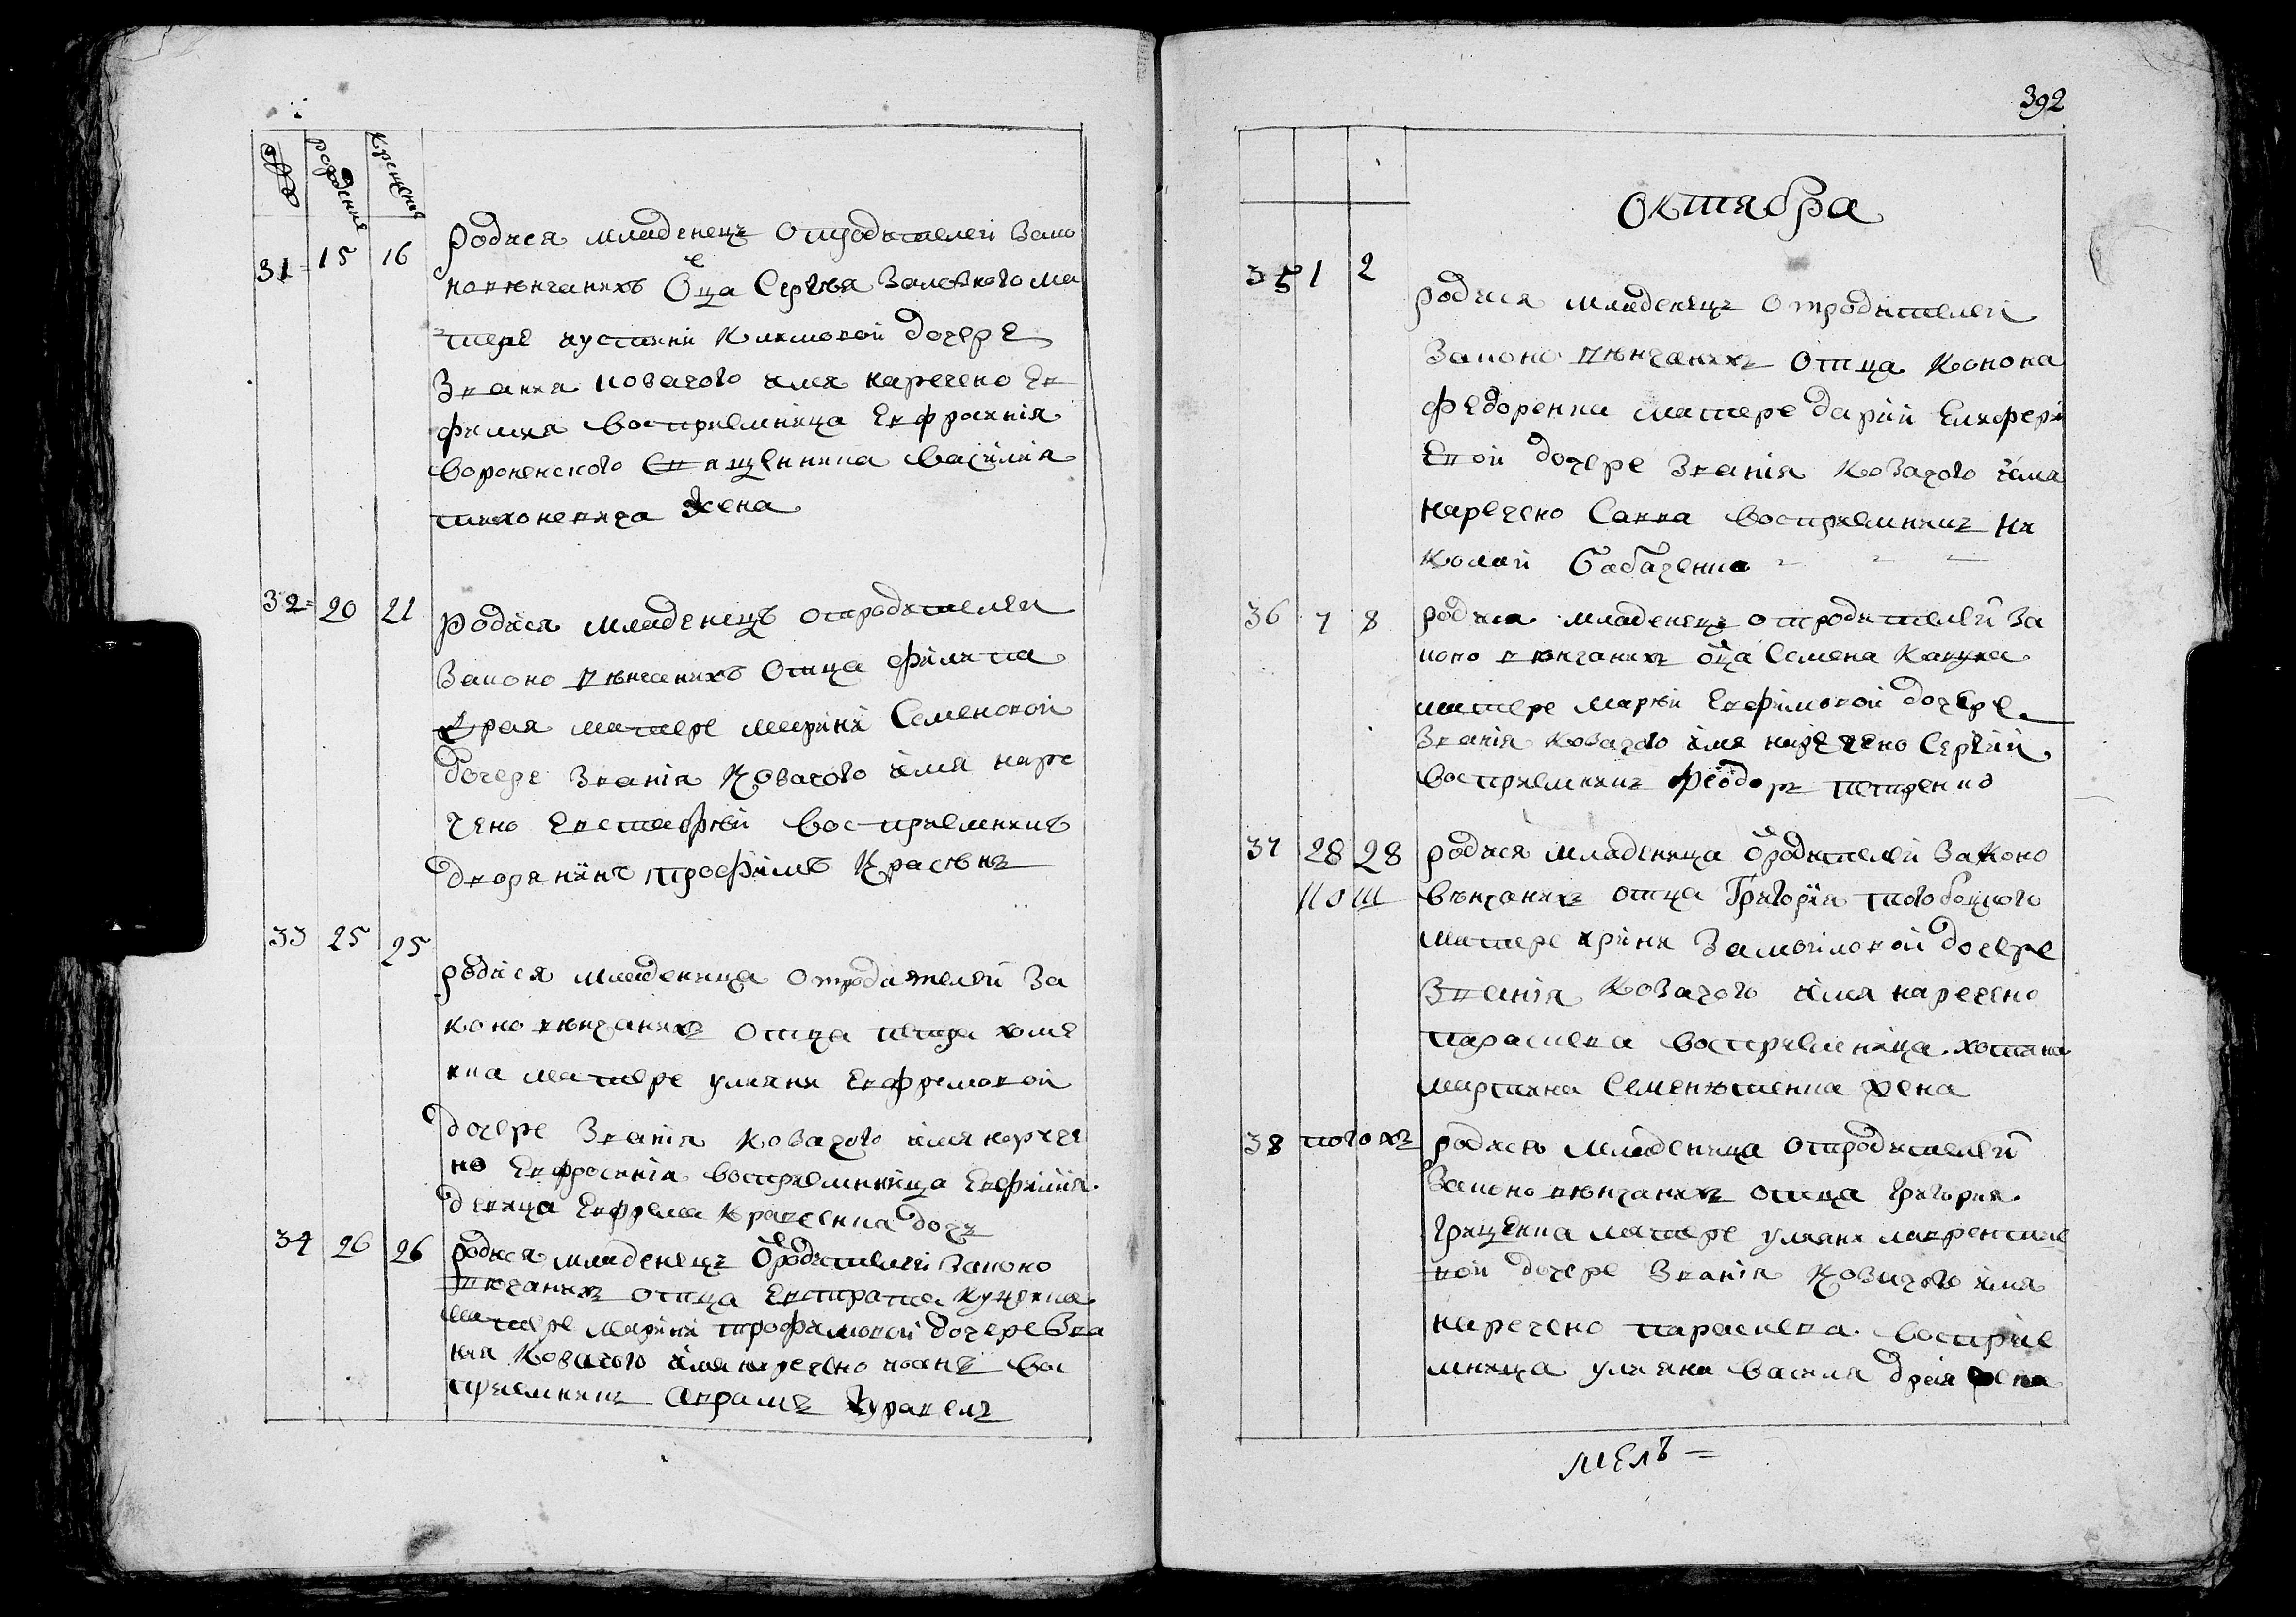 рождения
крещения
31 15 16 Родися младенецъ отродителей зако
новѣнчанихъ Оца Сергѣя Залезкого ма
тере иустини Климовой дочере
Звания козачого имя наречено Ев
фимия восприемница Евфросиния
вороненского священника василия
тихоневича жена
32 20 21 Родися младенецъ отродителей
законо вѣнчанихъ Отца Филипа
матере марини Семеновой
дочере звания Козачого имя наре
чено Евстафѣй восприемникъ
дворянинъ трофимъ Красѣнъ
33 25 25 родися младеница отродителей за
коно вѣнчанихъ отца петра
матере уляни Евфремовой
дочере звания козачого имя нарече
но Евфросиния восприемница Евфимия
девица Евфрема Кравченка дочъ
34 26 26 родися младенецъ Ородителей законо
вѣнчанихъ отца Евстрата Куценка
матере марини трофимовой дочере зва
ния козачого имя наречено иоанъ вос
приемникъ Аврамъ Журавелъ
392
Октября
35 1 2 родися младенецъ отродителей
Законо вѣнчанихъ отца Конона
Федоренка матере дарии Елифери
евой дочере звания козачого имя
наречено Савва восприемникъ Ни
колай Бабаченко
36 7 8 родися младенецъ отродителей за
коно вѣнчанихъ оца Семена Кацука
матере марѣи Евфимовой дочере
звания козачого имя наречено Сергий
восприемникъ Феодоръ петренко
37 28 28 родися младеница Ородителей законо
вѣнчанихъ отца Григория тогобочного
матере ирини Замойловой дочере
звания козачого имя наречено
параскева восприемница
мартина Семенютенка жена
38 тогожъ родися младеница отродителей
законо вѣнчанихъ отца григория
грищенка матере уляни лаврентие
вой дочере звания козачого имя
наречено параскева восприе
мница уляна василя драя жена
мелъ